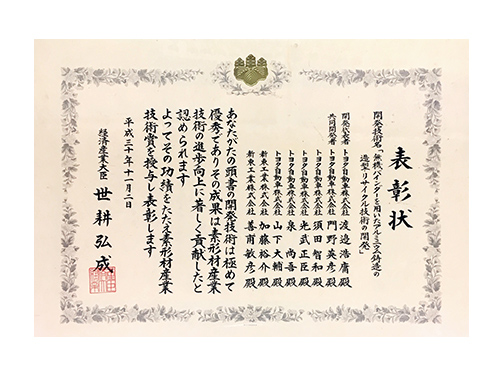 表彰状
開発技術名「無機バインダーを用いたアルミニウム鋳造の
造型・リサイクル技術の開発」
開発代表者 トヨタ自動車株式会社 渡邉浩庸殿
共同開発者 トヨタ自動車株式会社 門野英彦殿
トヨタ自動車株式会社 須田智和殿
トヨタ自動車株式会社 光武正臣殿
トヨタ自動車株式会社 泉尚吾殿
トヨタ自動車株式会社 山下大輔殿
新東工業株式会社 加藤裕介殿
新東工業株式会社 善甫敏彦殿
あなたがたの頭書の開発技術は極めて
優秀でありその成果は素形材産業
技術の進歩向上に著しく貢献したと
認められます
よってその功績をたたえ素形材産業
技術賞を授与し表彰します
平成三十年十一月二日
経済産業大臣 世耕弘成